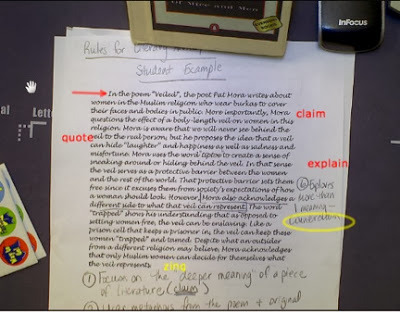 Of Mice and Men
InFocus
Rules for Literary
Student Example
In the poem "Veiled", the poet Pat Mora writes about
women in the Muslim religion who wear burkas to cover
their faces and bodies in public. More importantly, Mora
questions the effect of a body-length veil on women in this
religion. Mora is aware that we will never see behind the
veil to the real person, but he proposes the idea that a veil
can hide "laughter" and happiness as well as sadness and
misfortune. Mora uses the word tiptoe to create a sense of
sneaking around or hiding behind the veil. In that sense
the veil serves as a protective barrier between the women
and the rest of the world. That protective barrier sets them
free since it excuses them from society's expectations of how
a woman should look. However, Mora also acknowledges a
different side to what that veil can represent. The word
"trapped" shows his understanding that as opposed to
setting women free, the veil can be enslaving. Like a
prison cell that keeps a prisoner in, the veil can keep these
women "trapped" and tamed. Despite what an outsider
from a different religion may believe, Mora acknowledges
that only Muslim women can decide for themselves what
the veil represents.
claim
quote
explain
zing
⑥ Explores
more than
1 meaning -
counterclaim
① Focus on the "deeper meaning" of a piece
of literature (claim)
② metaphors from the poem + original